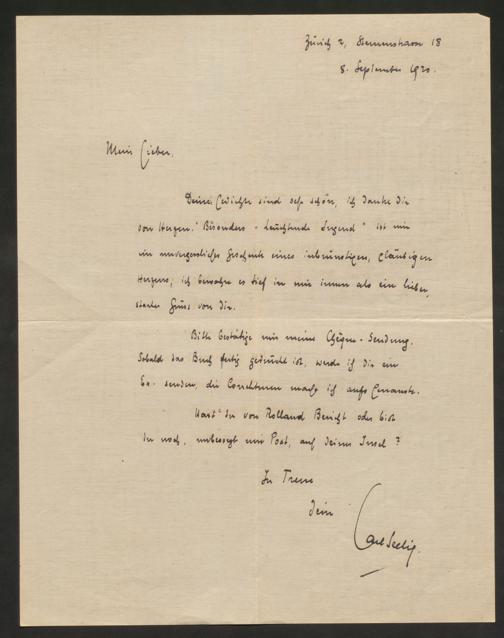 Zürich 2, Sternenstrasse 18
8. September 1920.
Mein Lieber,
Deine Gedichte sind sehr schön, ich danke Dir
von Herzen. Besonders „Leuchtende Jugend" ist mir
ein unvergessliches Geschenk eines inbrünstigen, gläubigen
Herzens; ich bewahre es tief in mir innen als ein lieber,
starker Gruss von Dir.
Bitte bestätige mir meine Chèque-Sendung.
Sobald das Buch fertig gedruckt ist, werde ich Dir ein
Ex. senden, die Correkturen mache ich aufs Genauste.
Hast Du von Rolland Bericht oder bist
Du noch, unbesorgt um Post, auf Deiner Insel?
In Treue
Dein
Carl Seelig.